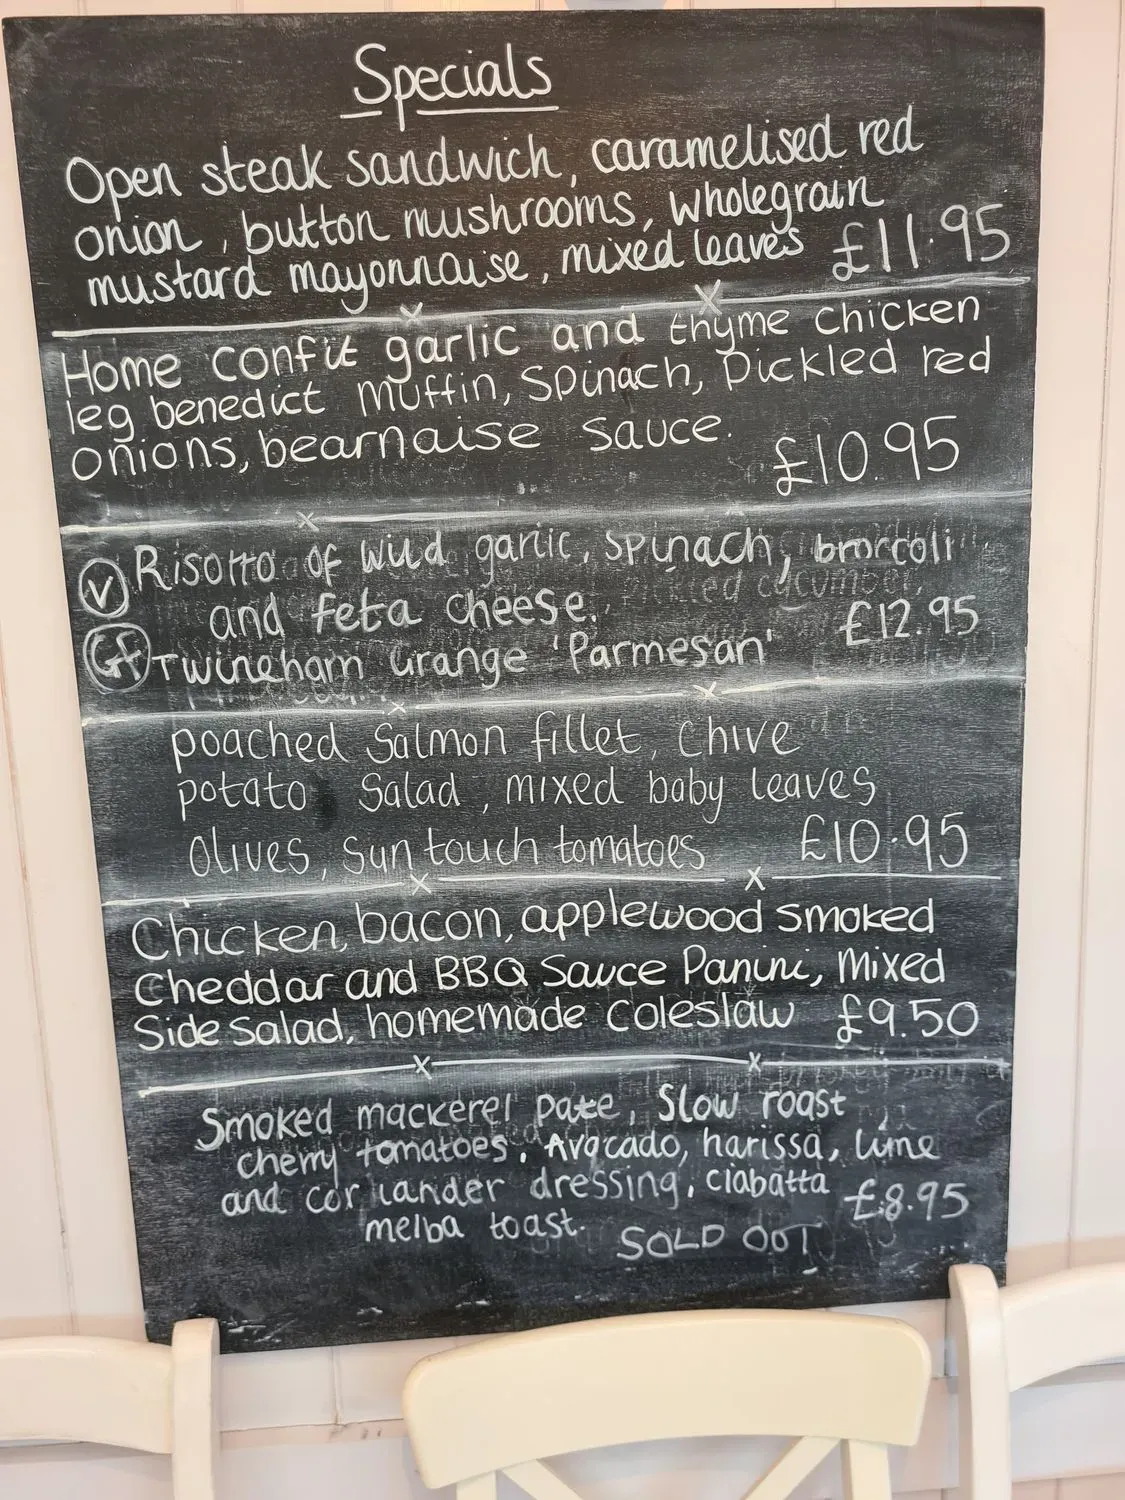 Specials
Open steak sandwich, caramelised red
onion, button mushrooms, wholegrain
mustard mayonnaise, mixed leaves £11.95
Home confit garlic and thyme chicken
leg benedict muffin, Spinach, Pickled red
onions, bearnaise sauce.
£10.95
V Risotto of wild garlic, spinach, broccoli
and feta cheese. £12.95
GF Twineham Grange 'Parmesan'
poached Salmon fillet, chive
potato Salad, mixed baby leaves
olives, sun touch tomatoes £10.95
Chicken, bacon, applewood smoked
Cheddar and BBQ Sauce Panini, Mixed
Side Salad, homemade Coleslaw £9.50
Smoked mackerel pate, Slow roast
cherry tomatoes, Avocado, harissa, lime
and coriander dressing, ciabatta £8.95
melba toast. SOLD OUT